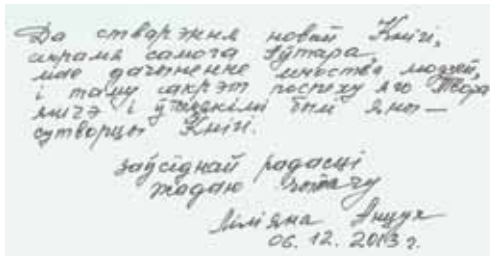 Да стварэння новай Кнігі,
акрамя самога Аўтара
мае дачыненне мноства людзей,
і таму сакрэт поспеху яго Твора
яшчэ і ў тым, кім былі яны —
сутворцы Кнігі.
Заўсёднай радасці
жадаю чытачу
Ліліяна Анцух
06. 12. 2013 г.